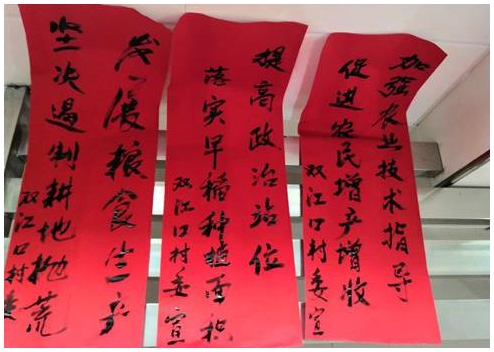 加强农业技术指导
促进农民增产增收
双江口村委宣
提高政治站位
落实早稻种植面积
双江口村委宣
发展粮食生产
坚决遏制耕地抛荒
双江口村委